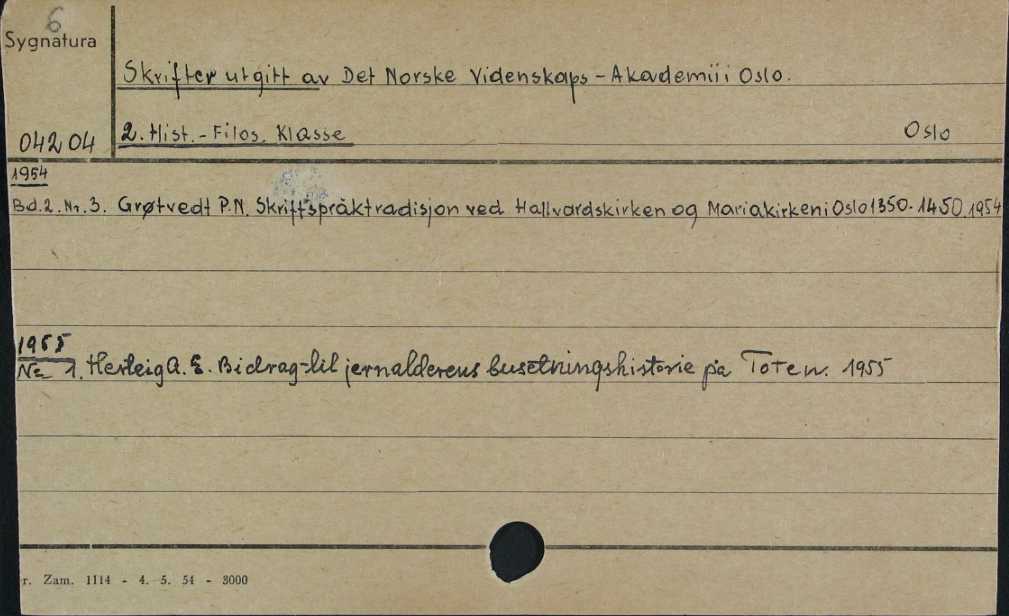 6
Sygnatura
Skrifter utgitt av Det Norske Videnskaps - Akademii i Oslo.
04204
2. Hist. - Filos. Klasse Oslo
1954
Bd. 2. Nr. 3. Grøtvedt P.N. Skriftspråktradisjon ved Hallvardskirken og Mariakirken i Oslo 1350-1450. 1954
1955
Nr 1. Herteig A. E. Bidrag til jernalderens busetningshistorie på Toten. 1955
r. Zam. 1114 - 4. 5. 54 - 3000